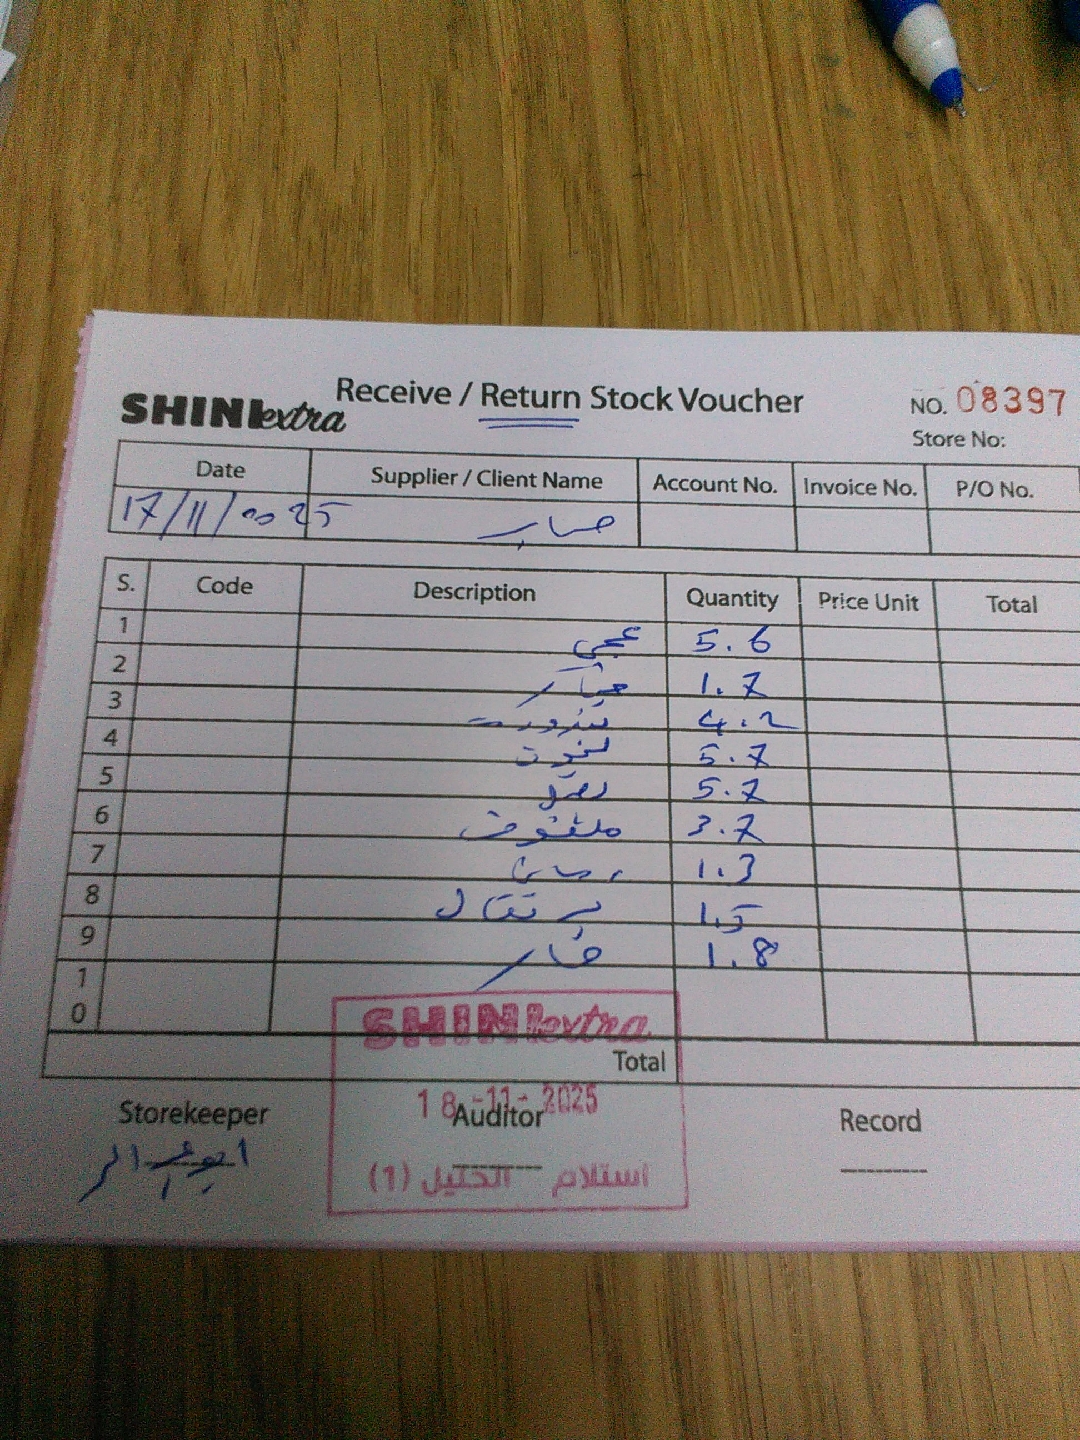 SHINIextra
Receive / Return Stock Voucher
NO. 08397
Store No:
Date Supplier / Client Name Account No. Invoice No. P/O No.
17/11/2025 صابر
S. Code Description Quantity Price Unit Total
1 عجمي 5.6
2 خيار 1.7
3 بندورة 4.2
4 5.7
5 بصل 5.7
6 ملفوف 3.7
7 رمان 1.3
8 برتقال 1.5
9 خيار 1.8
10
Total
SHINIextra
18-11-2025
استلام الخليل (1)
Storekeeper Auditor Record